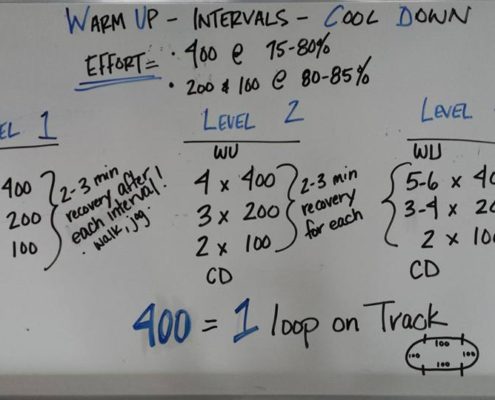 WARM UP - INTERVALS - COOL DOWN
EFFORT = • 400 @ 75-80%
• 200 & 100 @ 80-85%
EL 1
400
200
100
2-3 min
recovery after
each interval!
• walk, jog
LEVEL 2
WU
4 x 400
3 x 200
2 x 100
CD
2-3 min
recovery
for each
LEVEL
WU
5-6 x 40
3-4 x 20
2 x 100
CD
400 = 1 loop on Track
100
100
100
100